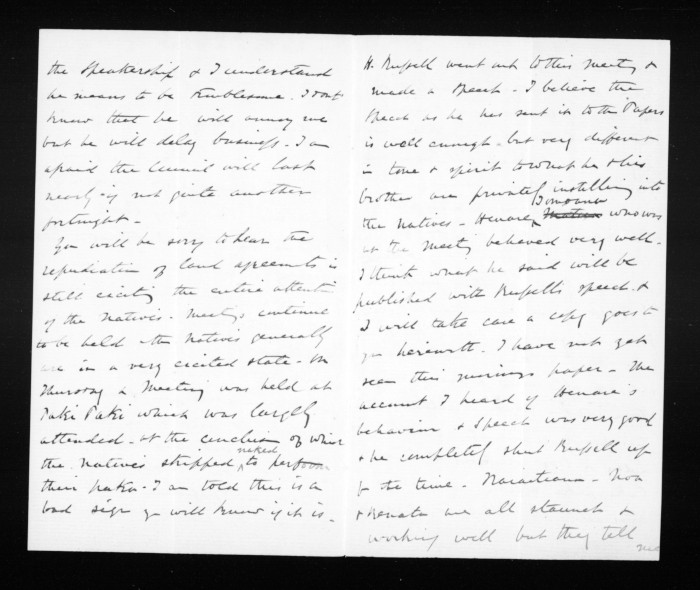 the Speakership & I understand
he means to be troublesome. I don't
know that he will annoy me
but he will delay business. I am
afraid the Council will last
nearly if not quite another
fortnight -
You will be sorry to hear the
repudiation of land agreements is
still exciting the entire attention
of the Natives. Meetings continue
to be held & the Natives generally
are in a very excited state. On
Thursday a Meeting was held at
Paki Paki which was largely
attended - at the conclusion of which
the natives stripped naked to perform
their haka. I am told this is a
bad sign you will know if it is -
H. Russell went out to this meeting &
made a speech - I believe the
speech as he has sent it to the Papers
is well enough - but very different
in tone & spirit to what he & his
brother are privately instilling into
the Natives - Henare Tomoana who was
at the meeting behaved very well -
I think what he said will be
published with Russell's speech &
I will take care a copy goes to
you herewith. I have not yet
seen this mornings paper - The
account I heard of Henare's
behaviour & speech was very good
& he completely shut Russell up
for the time - Karaitiana - Noa
& Renata are all staunch &
working well but they tell
me